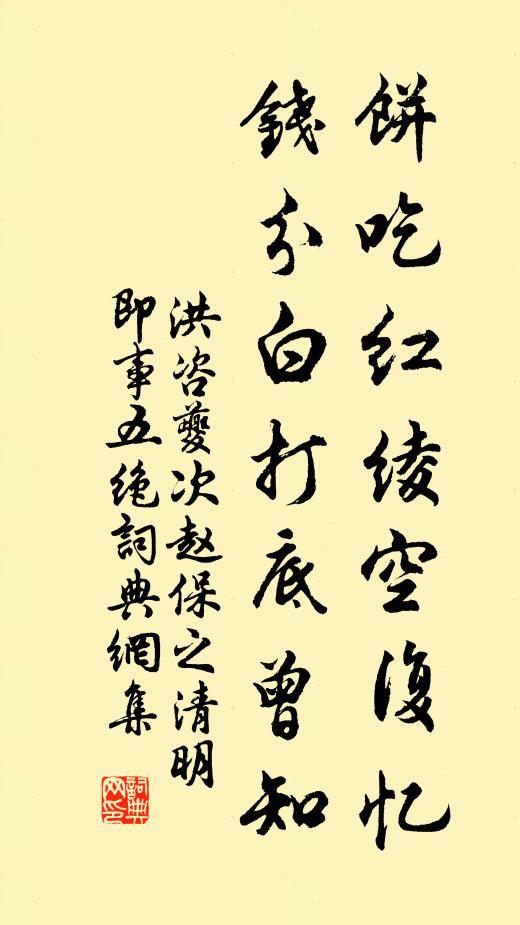 餅吃红绫空復忆
錢分白打底曾知
洪咨夔次赵保之清明
即事五绝詞典網集
詞典网印